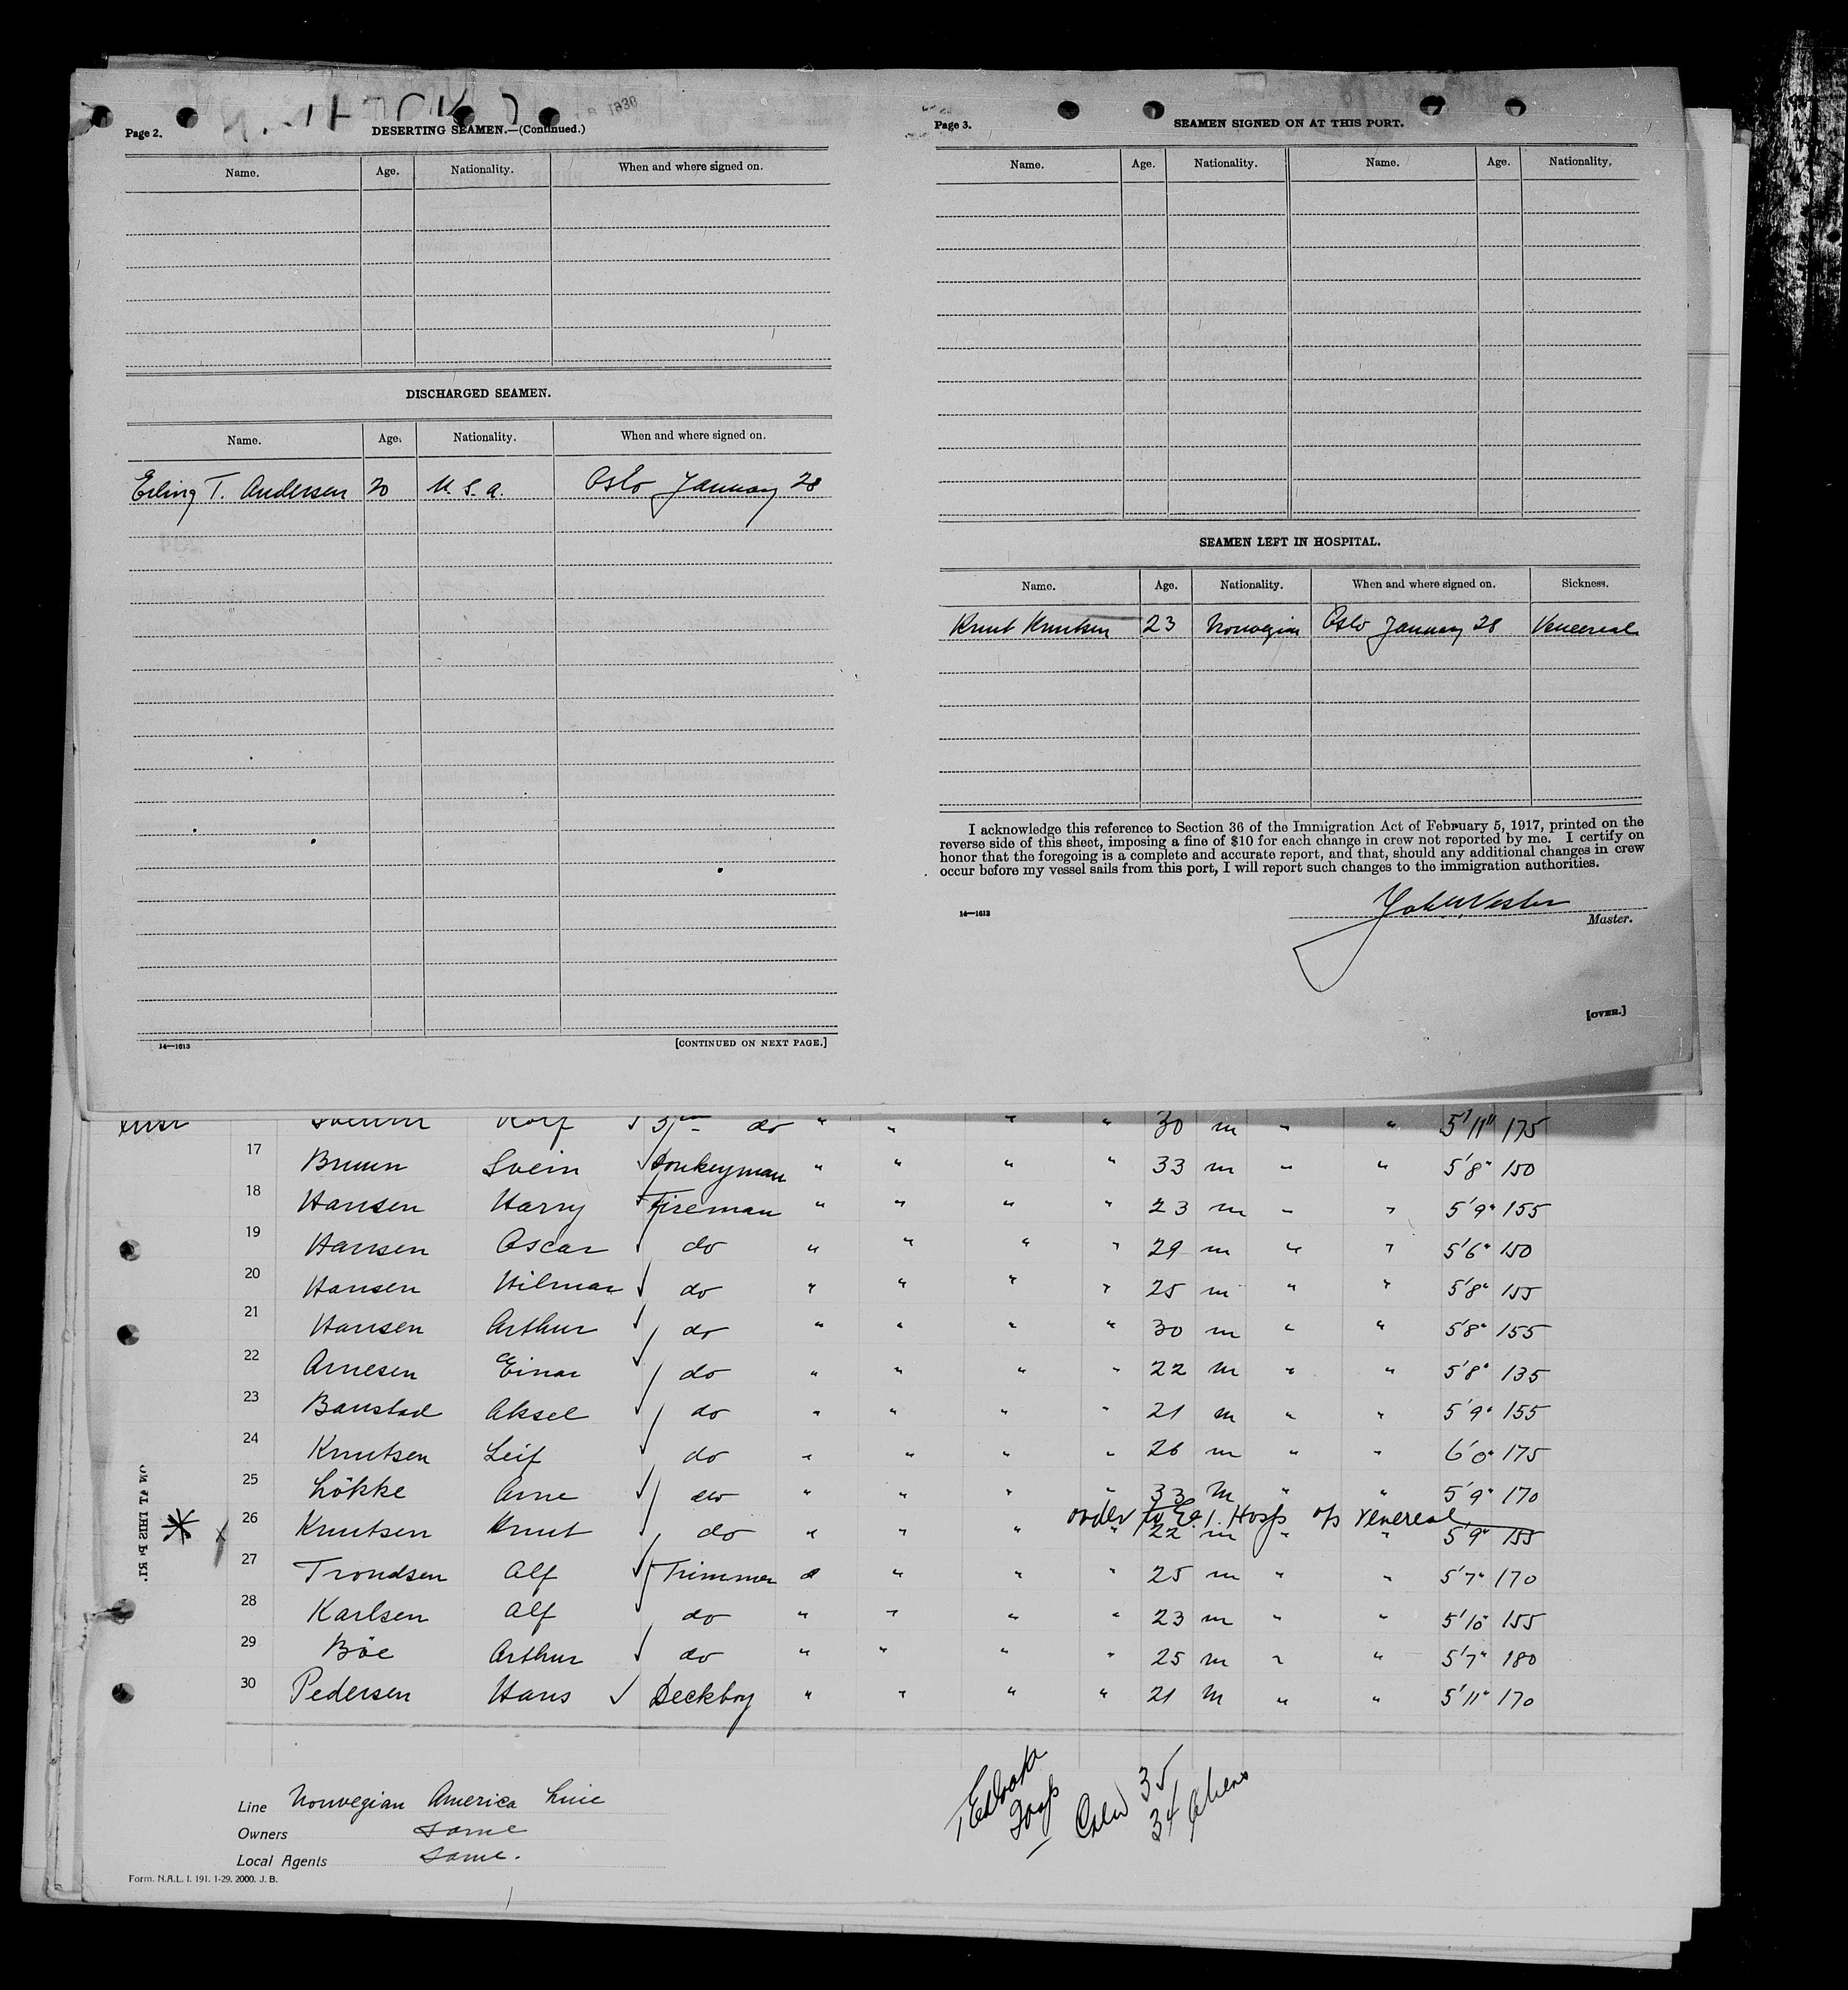 Page 2.
DESERTING SEAMEN.—(Continued.)
Name. Age. Nationality. When and where signed on.
DISCHARGED SEAMEN.
Name. Age. Nationality. When and where signed on.
Erling T. Andersen 20 U. S. A. Oslo January 28
14—1613 [CONTINUED ON NEXT PAGE.]
Page 3.
SEAMEN SIGNED ON AT THIS PORT.
Name. Age. Nationality. Name. Age. Nationality.
SEAMEN LEFT IN HOSPITAL.
Name. Age. Nationality. When and where signed on. Sickness.
Knut Knutsen 23 Norwegian Oslo January 28 Venereal
I acknowledge this reference to Section 36 of the Immigration Act of February 5, 1917, printed on the
reverse side of this sheet, imposing a fine of $10 for each change in crew not reported by me. I certify on
honor that the foregoing is a complete and accurate report, and that, should any additional changes in crew
occur before my vessel sails from this port, I will report such changes to the immigration authorities.
14—1613
Master.
[OVER.]
Rolf ✓ 3 do " " " " 30 m " " 5'11" 175
17 Bruun Svein ✓ Donkeyman " " " " 33 m " " 5'8" 150
18 Hansen Harry ✓ Fireman " " " " 23 m " " 5'9" 155
19 Hansen Oscar ✓ do " " " " 29 m " " 5'6" 150
20 Hansen Hilmar ✓ do " " " " 25 m " " 5'8" 155
21 Hansen Arthur ✓ do " " " " 30 m " " 5'8" 155
22 Arnesen Einar ✓ do " " " " 22 m " " 5'8" 135
23 Banstad Aksel ✓ do " " " " 21 m " " 5'9" 155
24 Knutsen Leif ✓ do " " " " 26 m " " 6'0" 175
25 Lökke Arne ✓ do " " " " 33 m " " 5'9" 170
order to E. I. Hosp a/c venereal
26 Knutsen Knut ✓ do " " " " 22 m " " 5'9" 155
27 Trondsen Alf ✓ Trimmer " " " " 25 m " " 5'7" 170
28 Karlsen Alf ✓ do " " " " 23 m " " 5'10" 155
29 Böe Arthur ✓ do " " " " 25 m " " 5'7" 180
30 Pedersen Hans ✓ Deckboy " " " " 21 m " " 5'11" 170
Line Norwegian America Line
Owners Same
Local Agents Same.
Form. N.A.L. I. 191. 1-29. 2000. J. B.
Crew 35
34 aliens